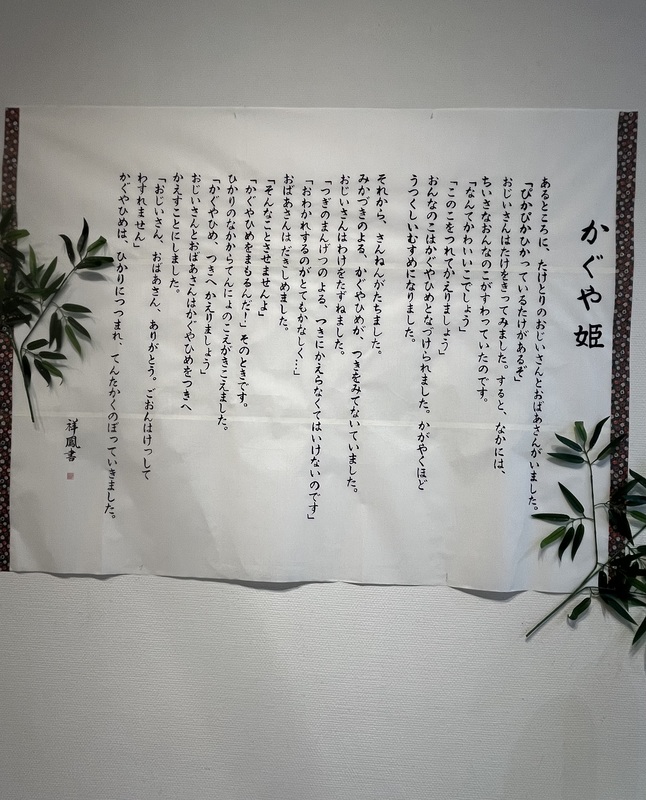 かぐや姫
あるところに、たけとりのおじいさんとおばあさんがいました。
「ぴかぴかひかっているたけがあるぞ」
おじいさんはたけをきってみました。すると、なかには、
ちいさなおんなのこがすわっていたのです。
「なんてかわいいこでしょう」
「このこをつれてかえりましょう」
おんなのこはかぐやひめとなづけられました。かがやくほど
うつくしいむすめになりました。
それから、さんねんがたちました。
みかづきのよる、かぐやひめが、つきをみてないていました。
おじいさんはわけをたずねました。
「つぎのまんげつのよる、つきにかえらなくてはいけないのです」
「おわかれするのがとてもかなしく…」
おばあさんはだきしめました。
「そんなことさせませんよ」
「かぐやひめをまもるんだ！」そのときです。
ひかりのなかからてんによのこえがきこえました。
「かぐやひめ、つきへかえりましょう」
おじいさんとおばあさんはかぐやひめをつきへ
かえすことにしました。
「おじいさん、おばあさん、ありがとう。ごおんはけっして
わすれません」
かぐやひめは、ひかりにつつまれ、てんたかくのぼっていきました。
祥鳳書